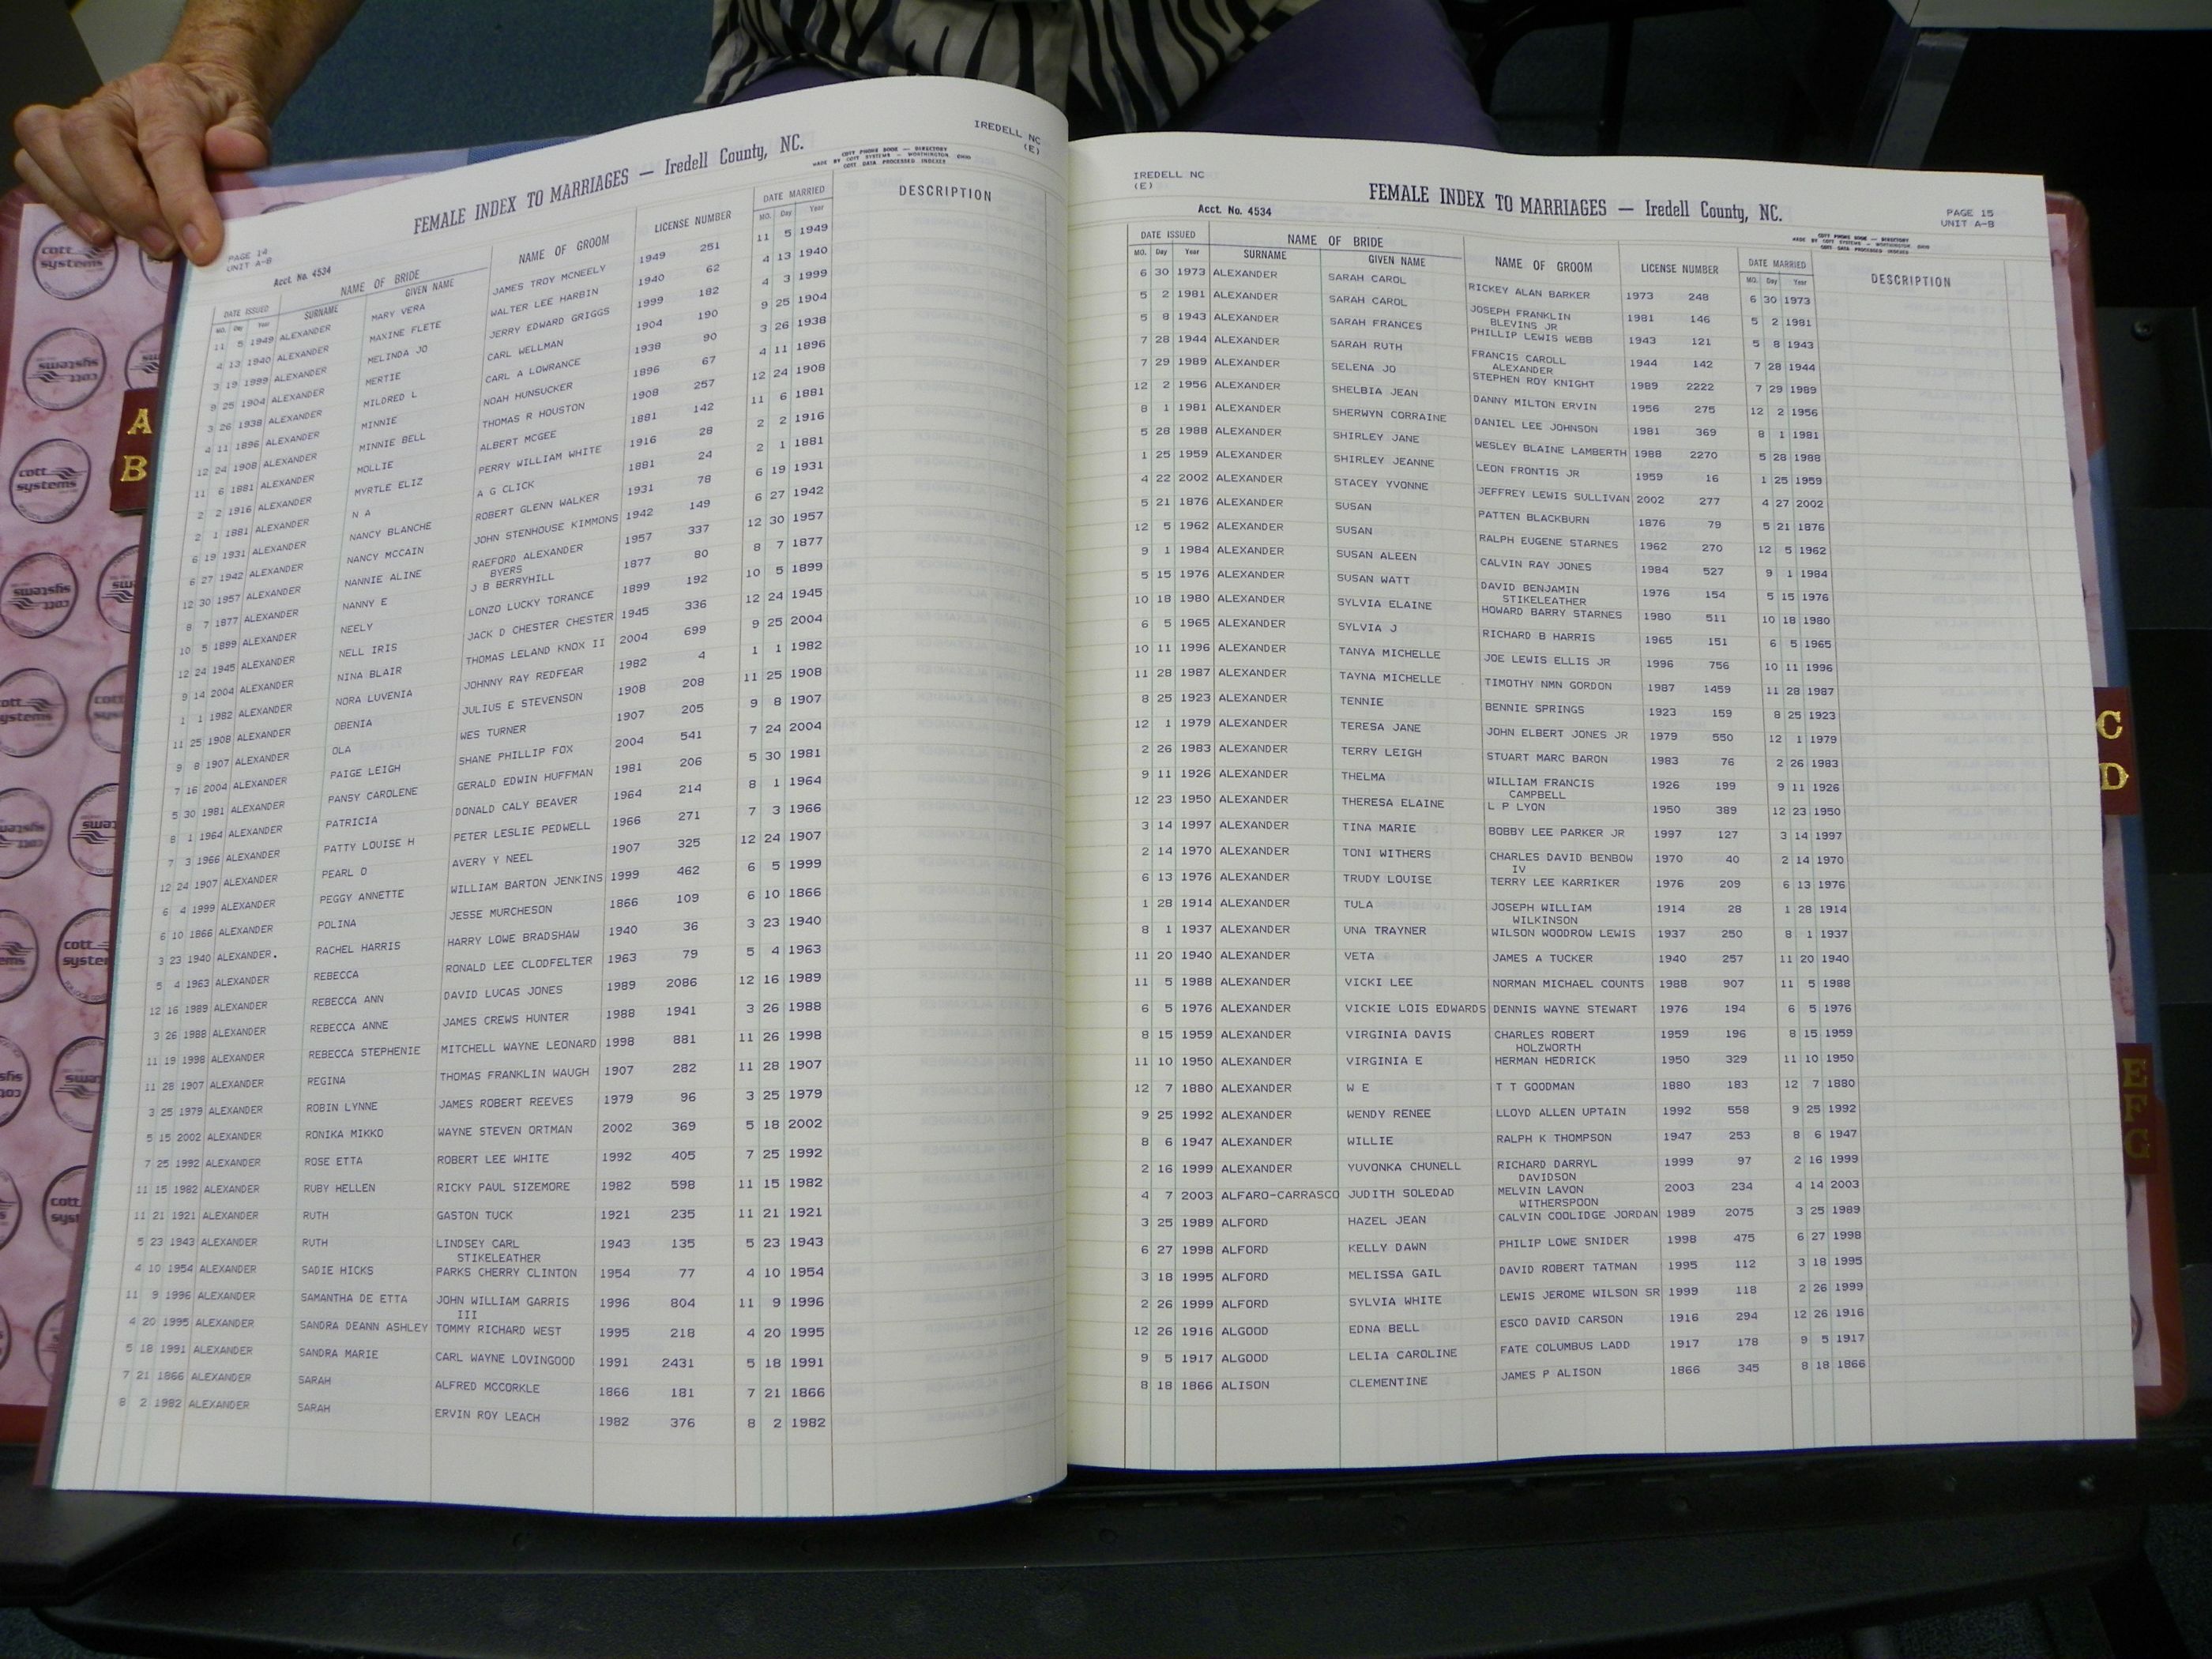 IREDELL NC
(E)
FEMALE INDEX TO MARRIAGES — Iredell County, NC.
COTT PHONE BOOK — DIRECTORY
MADE BY COTT SYSTEMS — WORTHINGTON OHIO
COTT DATA PROCESSED INDEXES
PAGE 14
UNIT A-B
Acct. No. 4534
DATE ISSUED NAME OF BRIDE NAME OF GROOM LICENSE NUMBER DATE MARRIED DESCRIPTION
MO. Day Year SURNAME GIVEN NAME MO. Day Year
11 5 1949 ALEXANDER MARY VERA JAMES TROY MCNEELY 1949 251 11 5 1949
4 13 1940 ALEXANDER MAXINE FLETE WALTER LEE HARBIN 1940 62 4 13 1940
3 19 1999 ALEXANDER MELINDA JO JERRY EDWARD GRIGGS 1999 182 4 3 1999
9 25 1904 ALEXANDER MERTIE CARL WELLMAN 1904 190 9 25 1904
3 26 1938 ALEXANDER MILDRED L CARL A LOWRANCE 1938 90 3 26 1938
4 11 1896 ALEXANDER MINNIE NOAH HUNSUCKER 1896 67 4 11 1896
12 24 1908 ALEXANDER MINNIE BELL THOMAS R HOUSTON 1908 257 12 24 1908
11 6 1881 ALEXANDER MOLLIE ALBERT MCGEE 1881 142 11 6 1881
2 2 1916 ALEXANDER MYRTLE ELIZ PERRY WILLIAM WHITE 1916 28 2 2 1916
2 1 1881 ALEXANDER N A A G CLICK 1881 24 2 1 1881
6 19 1931 ALEXANDER NANCY BLANCHE ROBERT GLENN WALKER 1931 78 6 19 1931
6 27 1942 ALEXANDER NANCY MCCAIN JOHN STENHOUSE KIMMONS 1942 149 6 27 1942
12 30 1957 ALEXANDER NANNIE ALINE RAEFORD ALEXANDER 1957 337 12 30 1957
BYERS
8 7 1877 ALEXANDER NANNY E J B BERRYHILL 1877 80 8 7 1877
10 5 1899 ALEXANDER NEELY LONZO LUCKY TORANCE 1899 192 10 5 1899
12 24 1945 ALEXANDER NELL IRIS JACK D CHESTER CHESTER 1945 336 12 24 1945
9 14 2004 ALEXANDER NINA BLAIR THOMAS LELAND KNOX II 2004 699 9 25 2004
1 1 1982 ALEXANDER NORA LUVENIA JOHNNY RAY REDFEAR 1982 4 1 1 1982
11 25 1908 ALEXANDER OBENIA JULIUS E STEVENSON 1908 208 11 25 1908
9 8 1907 ALEXANDER OLA WES TURNER 1907 205 9 8 1907
7 16 2004 ALEXANDER PAIGE LEIGH SHANE PHILLIP FOX 2004 541 7 24 2004
5 30 1981 ALEXANDER PANSY CAROLENE GERALD EDWIN HUFFMAN 1981 206 5 30 1981
8 1 1964 ALEXANDER PATRICIA DONALD CALY BEAVER 1964 214 8 1 1964
7 3 1966 ALEXANDER PATTY LOUISE H PETER LESLIE PEDWELL 1966 271 7 3 1966
12 24 1907 ALEXANDER PEARL O AVERY Y NEEL 1907 325 12 24 1907
6 4 1999 ALEXANDER PEGGY ANNETTE WILLIAM BARTON JENKINS 1999 462 6 5 1999
6 10 1866 ALEXANDER POLINA JESSE MURCHESON 1866 109 6 10 1866
3 23 1940 ALEXANDER. RACHEL HARRIS HARRY LOWE BRADSHAW 1940 36 3 23 1940
5 4 1963 ALEXANDER REBECCA RONALD LEE CLODFELTER 1963 79 5 4 1963
12 16 1989 ALEXANDER REBECCA ANN DAVID LUCAS JONES 1989 2086 12 16 1989
3 26 1988 ALEXANDER REBECCA ANNE JAMES CREWS HUNTER 1988 1941 3 26 1988
11 19 1998 ALEXANDER REBECCA STEPHENIE MITCHELL WAYNE LEONARD 1998 881 11 26 1998
11 28 1907 ALEXANDER REGINA THOMAS FRANKLIN WAUGH 1907 282 11 28 1907
3 25 1979 ALEXANDER ROBIN LYNNE JAMES ROBERT REEVES 1979 96 3 25 1979
5 15 2002 ALEXANDER RONIKA MIKKO WAYNE STEVEN ORTMAN 2002 369 5 18 2002
7 25 1992 ALEXANDER ROSE ETTA ROBERT LEE WHITE 1992 405 7 25 1992
11 15 1982 ALEXANDER RUBY HELLEN RICKY PAUL SIZEMORE 1982 598 11 15 1982
11 21 1921 ALEXANDER RUTH GASTON TUCK 1921 235 11 21 1921
5 23 1943 ALEXANDER RUTH LINDSEY CARL 1943 135 5 23 1943
STIKELEATHER
4 10 1954 ALEXANDER SADIE HICKS PARKS CHERRY CLINTON 1954 77 4 10 1954
11 9 1996 ALEXANDER SAMANTHA DE ETTA JOHN WILLIAM GARRIS 1996 804 11 9 1996
III
4 20 1995 ALEXANDER SANDRA DEANN ASHLEY TOMMY RICHARD WEST 1995 218 4 20 1995
5 18 1991 ALEXANDER SANDRA MARIE CARL WAYNE LOVINGOOD 1991 2431 5 18 1991
7 21 1866 ALEXANDER SARAH ALFRED MCCORKLE 1866 181 7 21 1866
8 2 1982 ALEXANDER SARAH ERVIN ROY LEACH 1982 376 8 2 1982
IREDELL NC
(E)
FEMALE INDEX TO MARRIAGES — Iredell County, NC.
PAGE 15
UNIT A-B
Acct. No. 4534
COTT PHONE BOOK — DIRECTORY
MADE BY COTT SYSTEMS — WORTHINGTON OHIO
COTT DATA PROCESSED INDEXES
DATE ISSUED NAME OF BRIDE NAME OF GROOM LICENSE NUMBER DATE MARRIED DESCRIPTION
MO. Day Year SURNAME GIVEN NAME MO. Day Year
6 30 1973 ALEXANDER SARAH CAROL RICKEY ALAN BARKER 1973 248 6 30 1973
5 2 1981 ALEXANDER SARAH CAROL JOSEPH FRANKLIN 1981 146 5 2 1981
BLEVINS JR
5 8 1943 ALEXANDER SARAH FRANCES PHILLIP LEWIS WEBB 1943 121 5 8 1943
7 28 1944 ALEXANDER SARAH RUTH FRANCIS CAROLL 1944 142 7 28 1944
ALEXANDER
7 29 1989 ALEXANDER SELENA JO STEPHEN ROY KNIGHT 1989 2222 7 29 1989
12 2 1956 ALEXANDER SHELBIA JEAN DANNY MILTON ERVIN 1956 275 12 2 1956
8 1 1981 ALEXANDER SHERWYN CORRAINE DANIEL LEE JOHNSON 1981 369 8 1 1981
5 28 1988 ALEXANDER SHIRLEY JANE WESLEY BLAINE LAMBERTH 1988 2270 5 28 1988
1 25 1959 ALEXANDER SHIRLEY JEANNE LEON FRONTIS JR 1959 16 1 25 1959
4 22 2002 ALEXANDER STACEY YVONNE JEFFREY LEWIS SULLIVAN 2002 277 4 27 2002
5 21 1876 ALEXANDER SUSAN PATTEN BLACKBURN 1876 79 5 21 1876
12 5 1962 ALEXANDER SUSAN RALPH EUGENE STARNES 1962 270 12 5 1962
9 1 1984 ALEXANDER SUSAN ALEEN CALVIN RAY JONES 1984 527 9 1 1984
5 15 1976 ALEXANDER SUSAN WATT DAVID BENJAMIN 1976 154 5 15 1976
STIKELEATHER
10 18 1980 ALEXANDER SYLVIA ELAINE HOWARD BARRY STARNES 1980 511 10 18 1980
6 5 1965 ALEXANDER SYLVIA J RICHARD B HARRIS 1965 151 6 5 1965
10 11 1996 ALEXANDER TANYA MICHELLE JOE LEWIS ELLIS JR 1996 756 10 11 1996
11 28 1987 ALEXANDER TAYNA MICHELLE TIMOTHY NMN GORDON 1987 1459 11 28 1987
8 25 1923 ALEXANDER TENNIE BENNIE SPRINGS 1923 159 8 25 1923
12 1 1979 ALEXANDER TERESA JANE JOHN ELBERT JONES JR 1979 550 12 1 1979
2 26 1983 ALEXANDER TERRY LEIGH STUART MARC BARON 1983 76 2 26 1983
9 11 1926 ALEXANDER THELMA WILLIAM FRANCIS 1926 199 9 11 1926
CAMPBELL
12 23 1950 ALEXANDER THERESA ELAINE L P LYON 1950 389 12 23 1950
3 14 1997 ALEXANDER TINA MARIE BOBBY LEE PARKER JR 1997 127 3 14 1997
2 14 1970 ALEXANDER TONI WITHERS CHARLES DAVID BENBOW 1970 40 2 14 1970
IV
6 13 1976 ALEXANDER TRUDY LOUISE TERRY LEE KARRIKER 1976 209 6 13 1976
1 28 1914 ALEXANDER TULA JOSEPH WILLIAM 1914 28 1 28 1914
WILKINSON
8 1 1937 ALEXANDER UNA TRAYNER WILSON WOODROW LEWIS 1937 250 8 1 1937
11 20 1940 ALEXANDER VETA JAMES A TUCKER 1940 257 11 20 1940
11 5 1988 ALEXANDER VICKI LEE NORMAN MICHAEL COUNTS 1988 907 11 5 1988
6 5 1976 ALEXANDER VICKIE LOIS EDWARDS DENNIS WAYNE STEWART 1976 194 6 5 1976
8 15 1959 ALEXANDER VIRGINIA DAVIS CHARLES ROBERT 1959 196 8 15 1959
HOLZWORTH
11 10 1950 ALEXANDER VIRGINIA E HERMAN HEDRICK 1950 329 11 10 1950
12 7 1880 ALEXANDER W E T T GOODMAN 1880 183 12 7 1880
9 25 1992 ALEXANDER WENDY RENEE LLOYD ALLEN UPTAIN 1992 558 9 25 1992
8 6 1947 ALEXANDER WILLIE RALPH K THOMPSON 1947 253 8 6 1947
2 16 1999 ALEXANDER YUVONKA CHUNELL RICHARD DARRYL 1999 97 2 16 1999
DAVIDSON
4 7 2003 ALFARO-CARRASCO JUDITH SOLEDAD MELVIN LAVON 2003 234 4 14 2003
WITHERSPOON
3 25 1989 ALFORD HAZEL JEAN CALVIN COOLIDGE JORDAN 1989 2075 3 25 1989
6 27 1998 ALFORD KELLY DAWN PHILIP LOWE SNIDER 1998 475 6 27 1998
3 18 1995 ALFORD MELISSA GAIL DAVID ROBERT TATMAN 1995 112 3 18 1995
2 26 1999 ALFORD SYLVIA WHITE LEWIS JEROME WILSON SR 1999 118 2 26 1999
12 26 1916 ALGOOD EDNA BELL ESCO DAVID CARSON 1916 294 12 26 1916
9 5 1917 ALGOOD LELIA CAROLINE FATE COLUMBUS LADD 1917 178 9 5 1917
8 18 1866 ALISON CLEMENTINE JAMES P ALISON 1866 345 8 18 1866
A
B
C
D
E
F
G
cott
systems